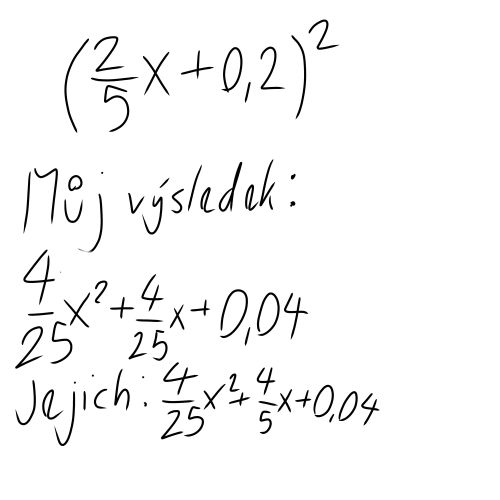 (2/5 x + 0,2)²
Můj výsledek:
4/25 x² + 4/25 x + 0,04
Jejich: 4/25 x² + 4/5 x + 0,04